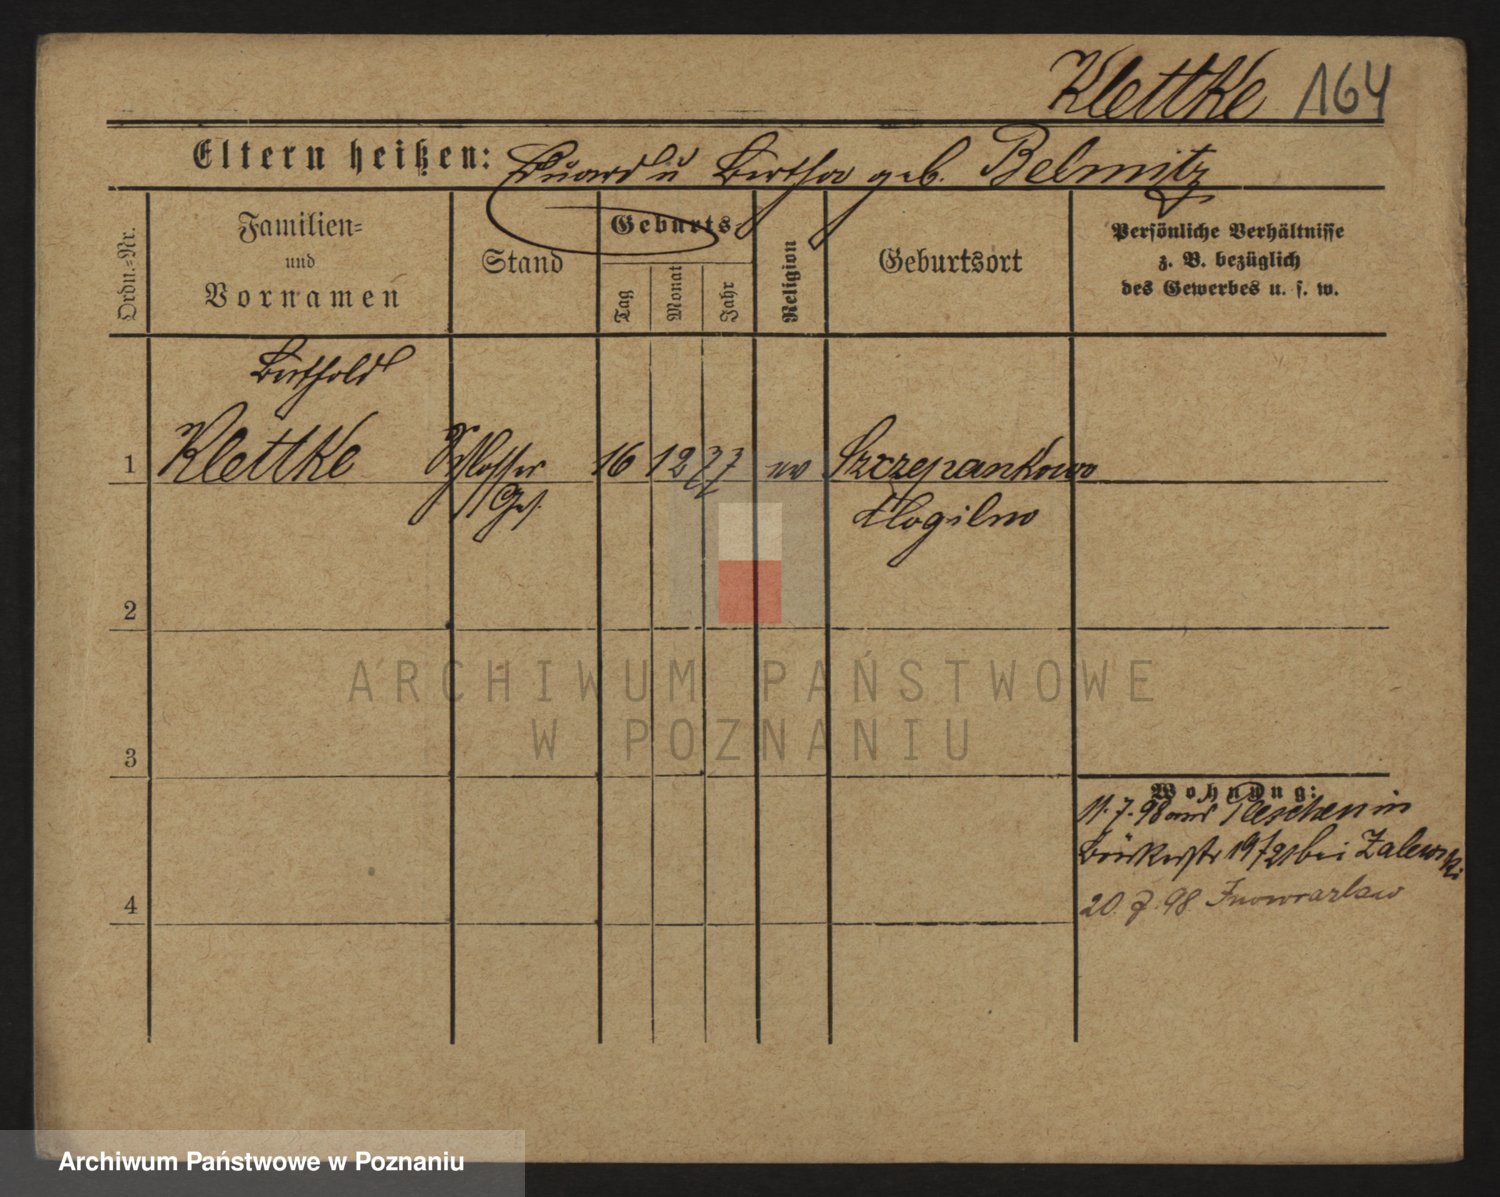 Klettke 164
Eltern heißen: Eduard u Bertha geb. Belmitz
Ordn.-Nr.
Familien-
und
Vornamen
Stand
Geburts
Tag
Monat
Jahr
Religion
Geburtsort
Persönliche Verhältnisse
z. B. bezüglich
des Gewerbes u. s. w.
Berthold
1 Klettke Schlosser 16 12 77 ev Szczepankowo
Ges. Mogilno
2
3
4
Wohnung:
11.7.98 aus Pleschen in
Bäckerstr 19/21 bei Zalewski
20.7.98 Inowrazlaw
ARCHIWUM PAŃSTWOWE
W POZNANIU
Archiwum Państwowe w Poznaniu